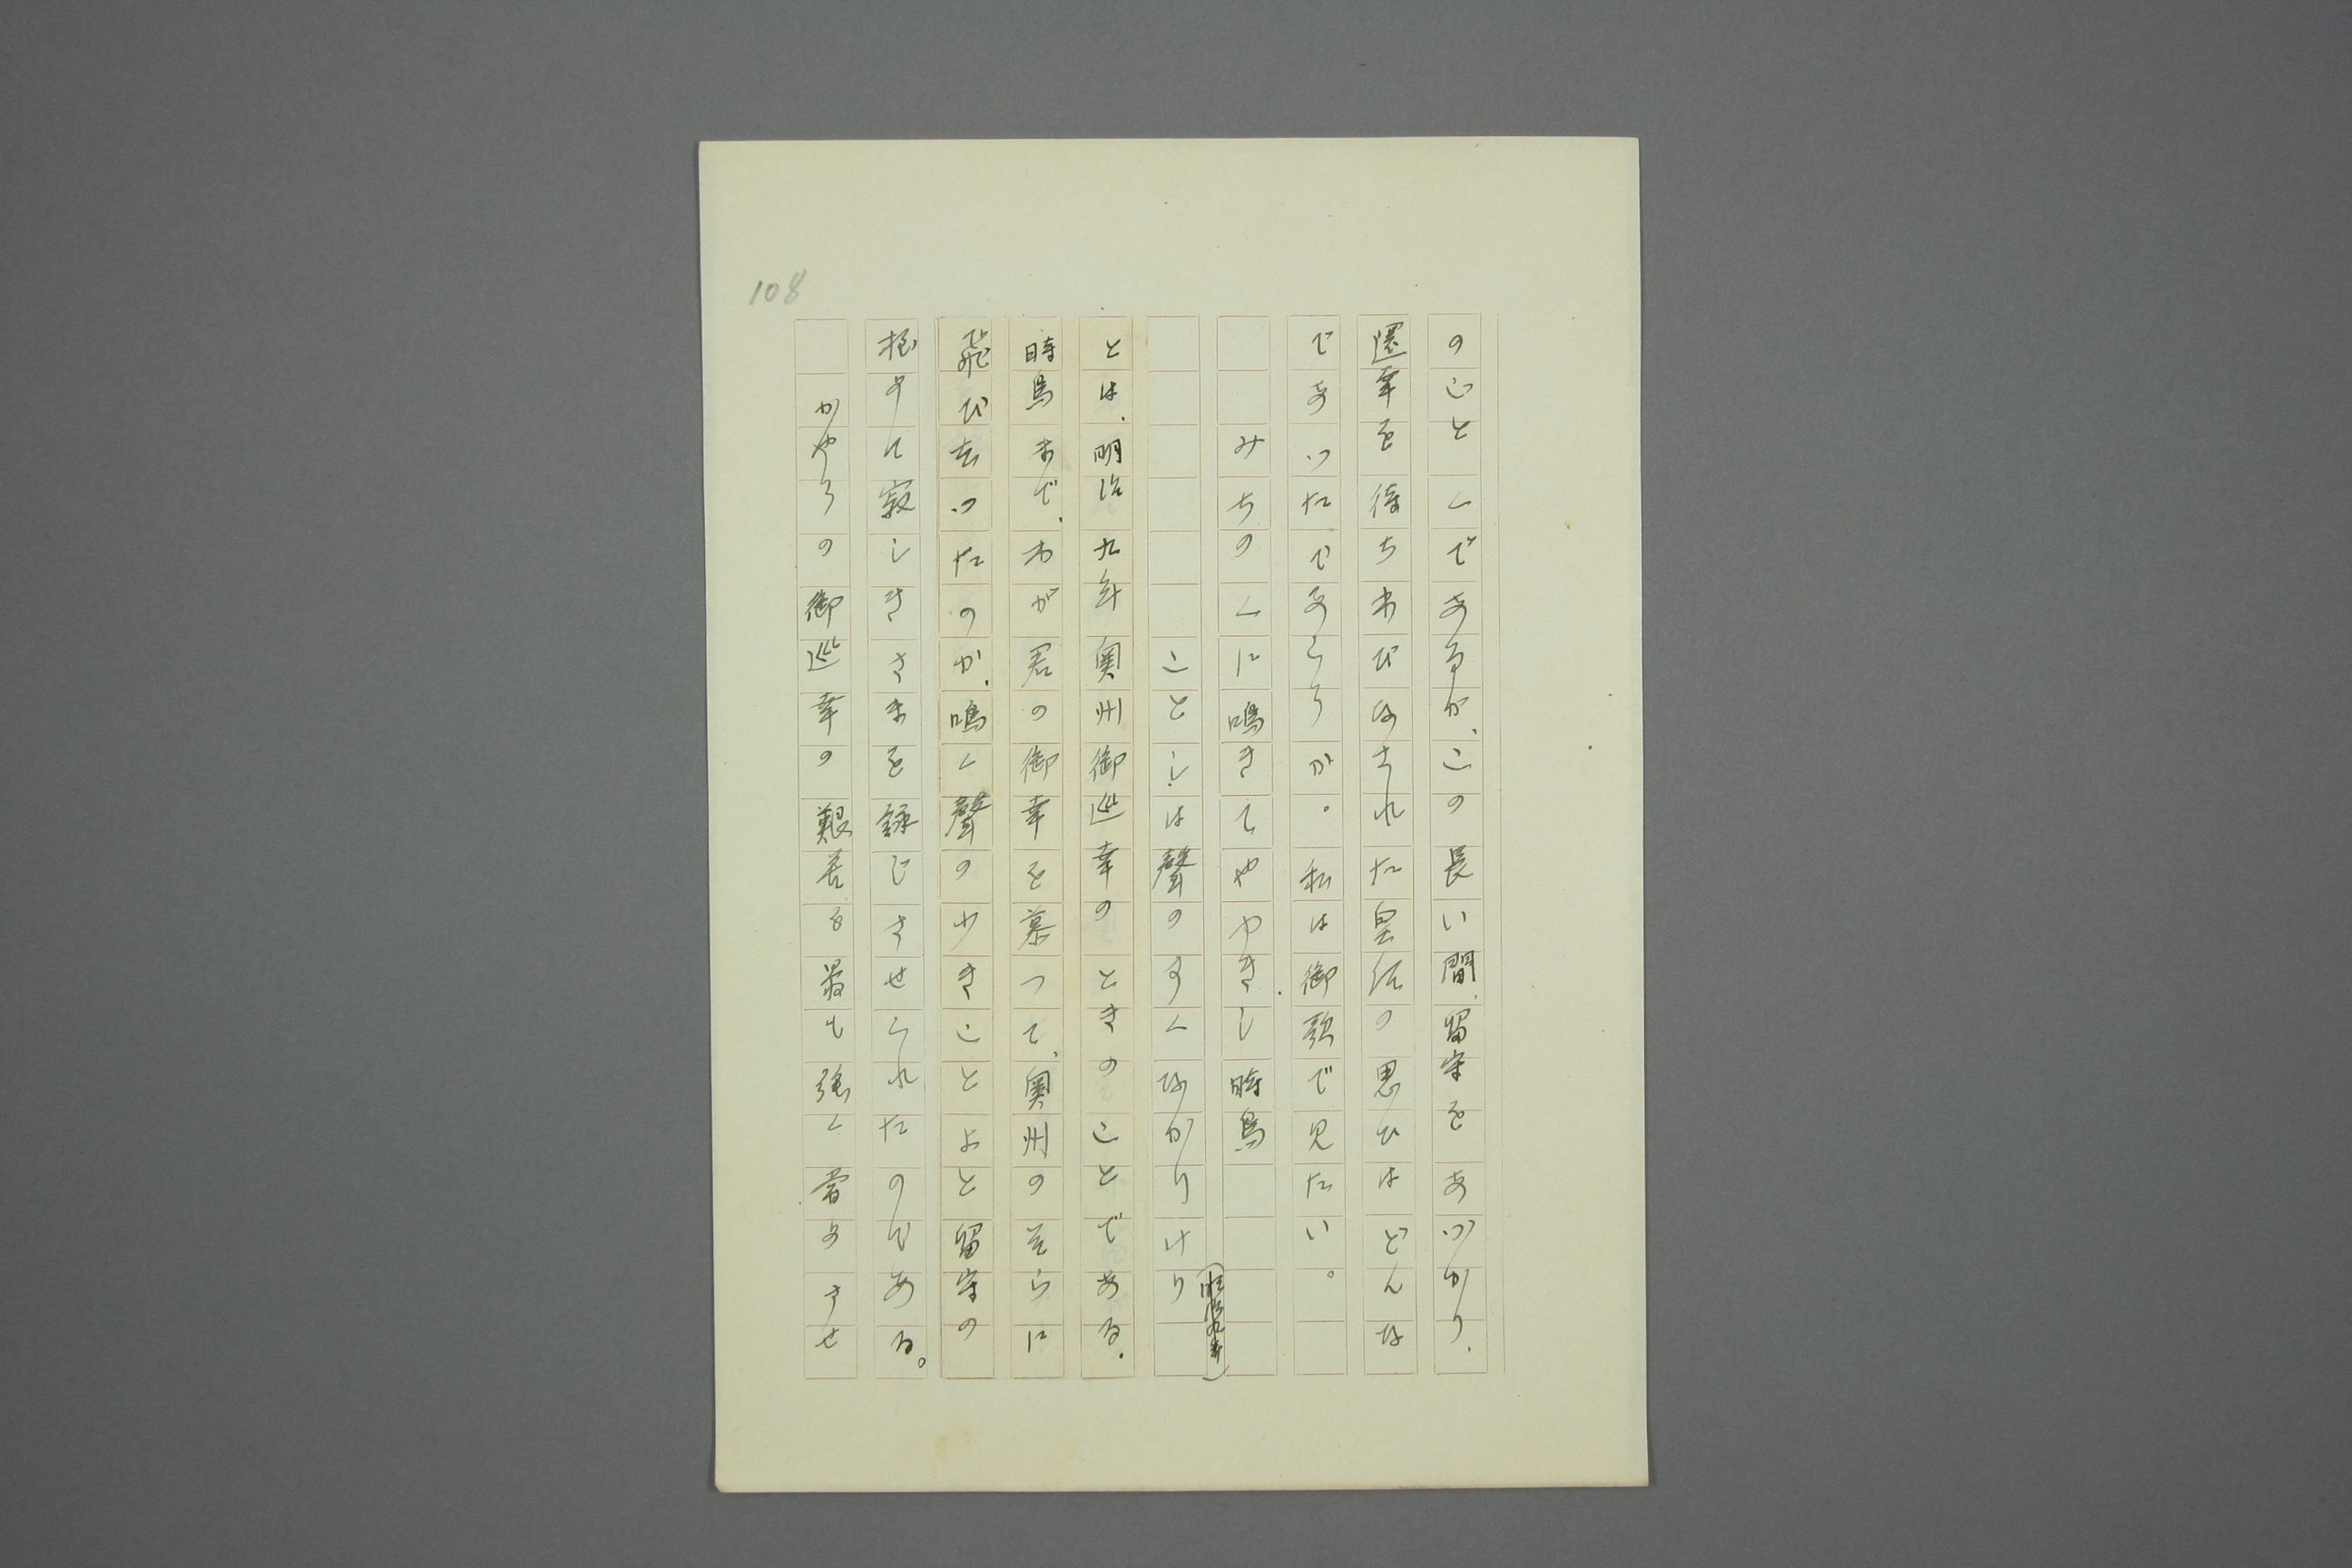 108
のことくであるが、この長い間、留守をあづかり、
還幸を待ちわびなされた皇后の思ひはどんな
であつたであらうか。私は御歌で見たい。
みちのくに鳴きてやゆきし時鳥
ことしは聲のすくなかりけり
(明治九年)
とは、明治九年奥州御巡幸のときのことである。
時鳥まで、わが君の御幸を慕つて、奥州のそらに
飛び去つたのか、鳴く聲の少きことよと留守の
極めて寂しきさまを詠じさせられたのである。
かやうの御巡幸の艱苦を最も強く嘗めさせ